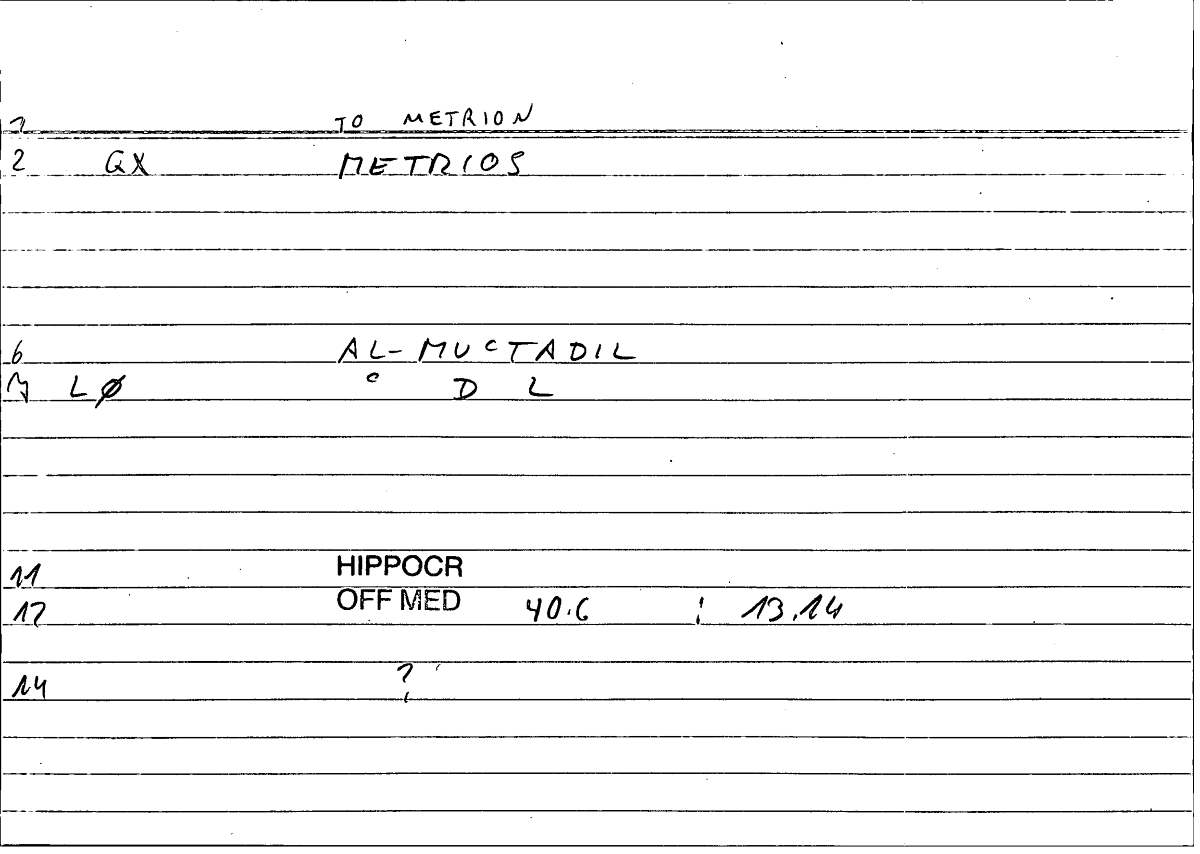 1 TO METRION
2 GX METRIOS
6 AL-MUCTADIL
7 LØ C D L
11 HIPPOCR
12 OFF MED 40.6 : 13.14
14 ?